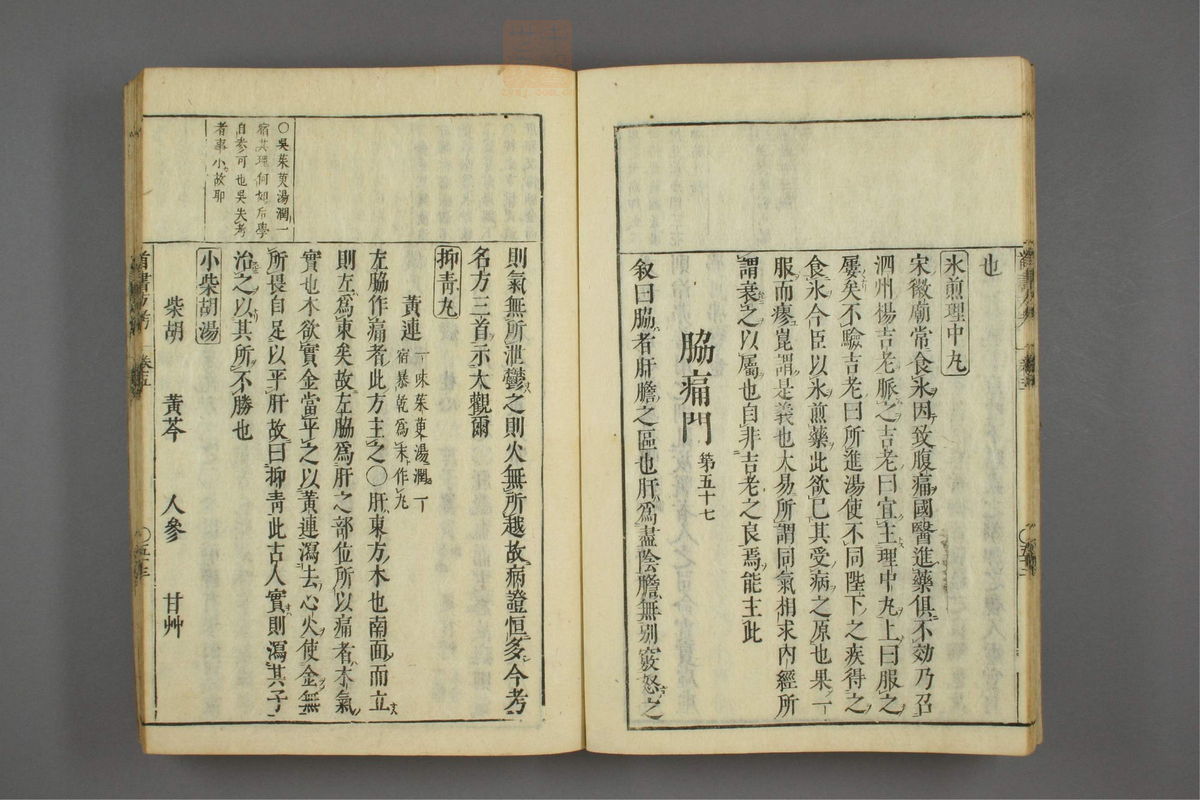 也
氷煎理中丸
宋徽廟常食氷因致腹痛國醫進藥俱不効乃召
泗州楊吉老脈之吉老曰宜主理中丸上曰服之
屢矣不驗吉老曰所進湯使不同陛下之疾得之
食氷今臣以氷煎藥此欲已其受病之原也果一
服而瘳崑謂是義也大易所謂同氣相求內經所
謂衰之以屬也自非吉老之良焉能主此
脇痛門 第五十七
叙曰脇者肝膽之區也肝爲盡陰膽無别竅怒之
則氣無所泄鬱之則火無所越故病證恒多今考
名方三首示大觀爾
抑靑丸
黃連 一味茱萸湯潤一
宿暴乾爲末作丸
左脇作痛者此方主之〇肝東方木也南面而立
則左爲東矣故左脇爲肝之部位所以痛者木氣
實也木欲實金當平之以黃連瀉去心火使金無
所畏自足以平肝故曰抑靑此古人實則瀉其子
治之以其所不勝也
小柴胡湯
柴胡 黃芩 人參 甘艸
〇吳茱萸湯潤一
宿其理何如后學
自參可也吳失考
者事小故耶
卷五